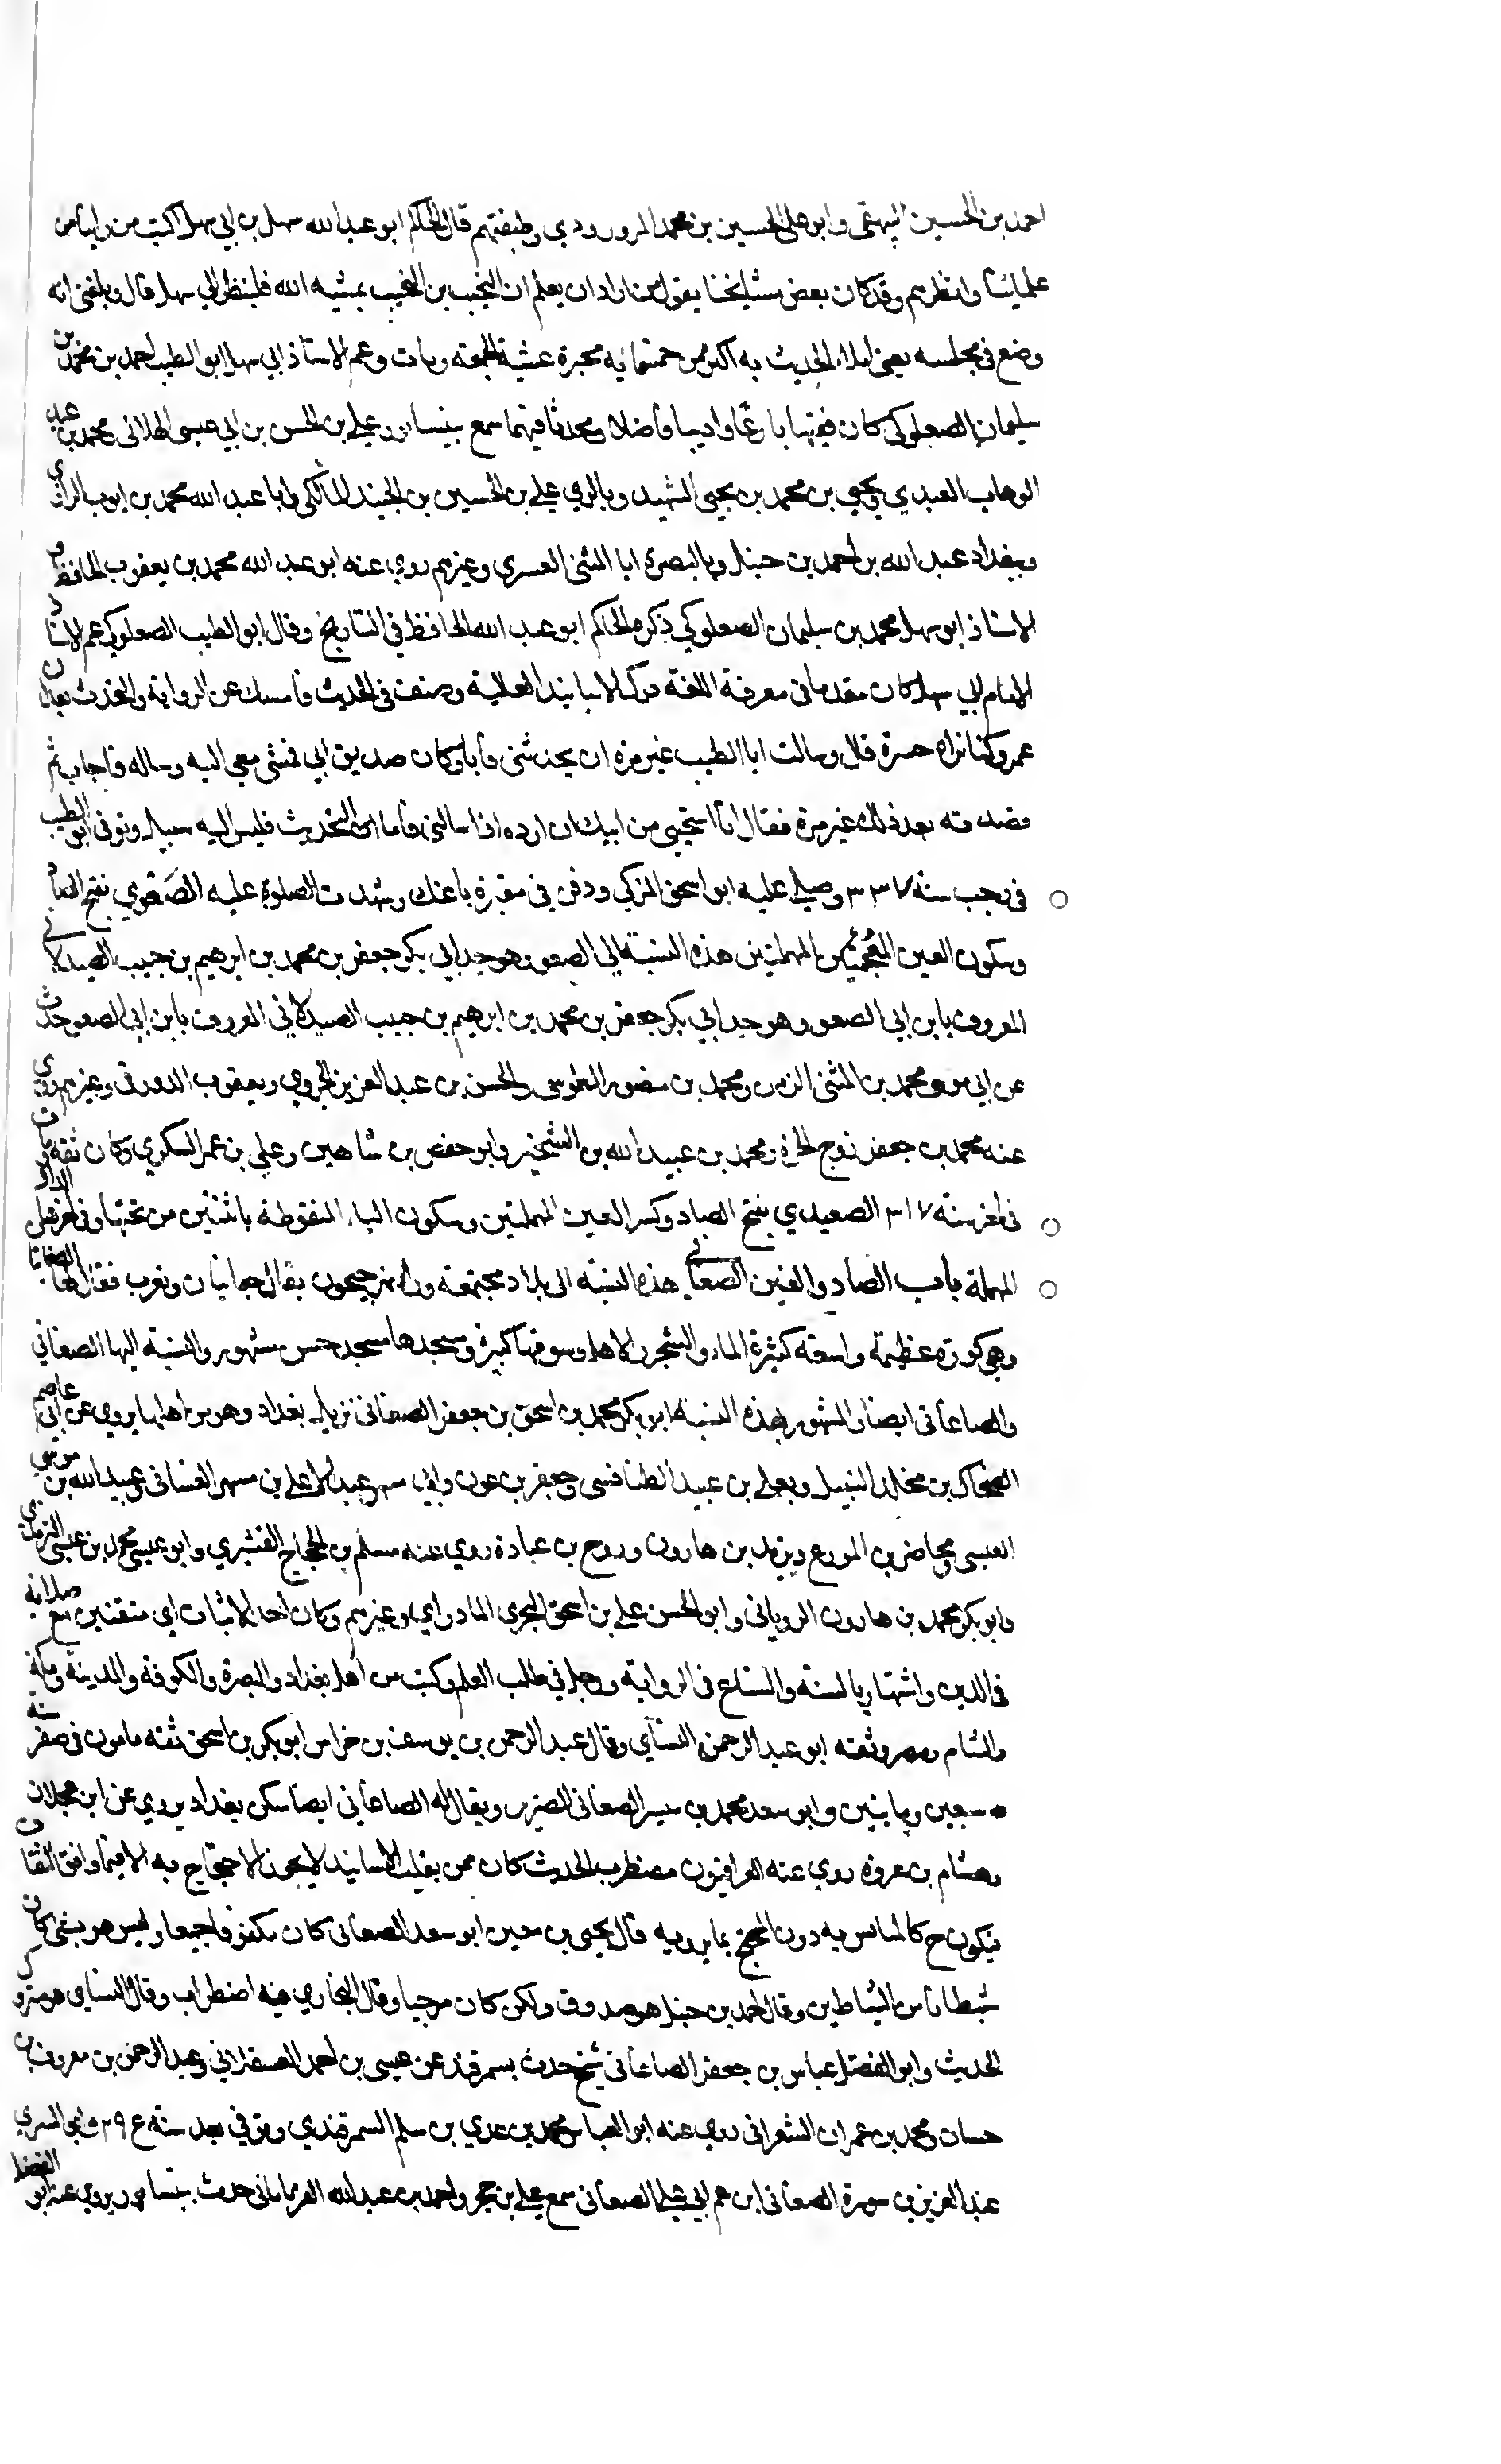 احمد بن الحسين البيهقي وابو علي الحسين بن محمد المروروذي وطبقتهم قال الحاكم ابو عبد الله سهل بن ابي سهل اكتب من راينا من
علمائنا وانظرهم وقد كان بعض مشايخنا يقول من اراد ان يعلم ان النجيب بن النجيب بمشيه الله فلينظر الي سهل قال وبلغني انه
وضع في مجلسه يعني املاء الحديث به اكثر من خمسمائه محبرة عشية الجمعه ومات وعم الاستاذ ابي سهل ابو الطيب احمد بن محمد بن
سليمان الصعلوكي كان فقيها بارعا واديبا فاضلا ومحدثا فهما سمع بنيسابور علي بن الحسن بن ابي عيسى الهلالي ومحمد بن عبد
الوهاب العبدي ويحيي بن محمد بن يحيي الشهيد وبالري علي بن الحسين بن الجنيد المالكي وابا عبد الله محمد بن ايوب الرازي
وببغداد عبد الله بن احمد بن حنبل وبالبصرة ابا المثنى العسري وغيرهم روي عنه ابو عبد الله محمد بن يعقوب الحافظ و
الاستاذ ابو سهل محمد بن سليمان الصعلوكي ذكره الحاكم ابو عبد الله الحافظ في التاريخ وقال ابو الطيب الصعلوكي عم الاستاذ
الامام ابي سهل كان مقدما في معرفة اللغة درك الاسانيد العالية وصنف في الحديث وامسك عن الرواية والتحدث بعد ان
عمر وكنا نراه حسرة قال وسالت ابا الطيب غير مرة ان يحدثني فابا وكان صديق ابي فمشى معي اليه وساله فاجاب ثم
قصدته بعد ذلك غير مرة فقال انا استحيي من ابيك ان ارده اذا سالني فاما التحديث فليس اليه سبيل وتوفي ابو الطيب
في رجب سنة ٣٣٧ وصلي عليه ابو اسحق المزكي ودفن في مقبرة باغك وشهدت الصلوة عليه الصعوي بفتح الصاد
وسكون العين المهملتين هذه النسبة الى الصعو وهو جد ابي بكر جعفر بن محمد بن ابرهيم بن حبيب الصيدلاني
المعروف بابن ابي الصعو وهو جد ابي بكر جعفر بن محمد بن ابرهيم بن حبيب الصيدلاني المعروف بابن ابي الصعو حدث
عن ابي موسى محمد بن المثنى الزمن ومحمد بن منصور الطوسي والحسن بن عبد العزيز الجروي ويعقوب الدورقي وغيرهم روي
عنه محمد بن جعفر زوج الحرة ومحمد بن عبيد الله بن الشخير وابو حفص بن شاهين وعلي بن عمر السكري وكان ثقة ومات
في اخر سنة ٣١٧ الصعيدي بفتح الصاد وكسر العين المهملتين وسكون الياء المنقوطة باثنتين من تحتها وفي اخرها الدال
المهملة باب الصاد والغين الصغاني هذه النسبة الى بلاد مجتمعة وراء نهر جيحون يقال لها جغانيان وتعرب فيقال لها الصغانيان
وهي كورة عظيمة واسعة كثيرة الماء والشجر والاهل وسوقها كبيرة ومسجدها مسجد حسن مشهور والنسبة اليها الصغاني
والصاغاني ايضا والمشهور بهذه النسبة ابو بكر محمد بن اسحق بن جعفر الصغاني نزيل بغداد وهو من اهلها يروي عن ابي عاصم
الضحاك بن مخلد النبيل ويعلي بن عبيد الطنافسي وجعفر بن عون وابي مسهر عبد الاعلي بن مسهر الغساني وعبيد الله بن موسى
العبسي ومحاضر بن المورع ويزيد بن هارون وروح بن عبادة روي عنه مسلم بن الحجاج القشيري وابو عيسى محمد بن عيسى الترمذي
وابو بكر محمد بن هارون الروياني وابو الحسن علي بن اسحق البحري المادراي وغيرهم وكان احد الاثبات ابي متقنين مع صلابة
في الدين واشتهار بالسنة واتساع في الرواية ورحل في طلب العلم وكتب من اهل بغداد والبصرة والكوفة والمدينة ومكة
والشام ومصر وثقه ابو عبد الرحمن النسائي وقال عبد الرحمن بن يوسف بن خراش ابو بكر بن اسحق ثقة مامون في صفر سنة
سبعين ومايتين وابو سعد محمد بن ميسر الصغاني الضرير ويقال له الصاغاني ايضا سكن بغداد يروي عن ابن عجلان
وهشام بن عروة روي عنه العراقيون مضطرب الحديث كان ممن يقلب الاسانيد لا يجوز الاحتجاج به الا فيما وافق الثقات
فيكون ح كالمانس به دون المحتج بما يرويه قال يحيى بن معين ابو سعد الصغاني كان مكفوفا جهميا وليس هو بشي كان
شيطانا من الشياطين وقال احمد بن حنبل هو صدوق ولكن كان مرجيا وقال البخاري فيه اضطراب وقال النسايي هو متروك
الحديث وابو الفضل عباس بن جعفر الصاغاني شيخ حدث بسمرقند عن عيسى بن احمد العسقلاني وعبد الرحمن بن معروف بن
حسان ومحمد بن عمران الشعراني روي عنه ابو العباس محمد بن عدي بن سلم السمرقندي وتوفي بعد سنة وابي السري
عبد العزيز بن سهرة الصغاني ابن عم ابي علي الصغاني سمع علي بن حجر واحمد بن عبد الله الفرياناني حدث بنيسابور يروي عنه ابو الفضل